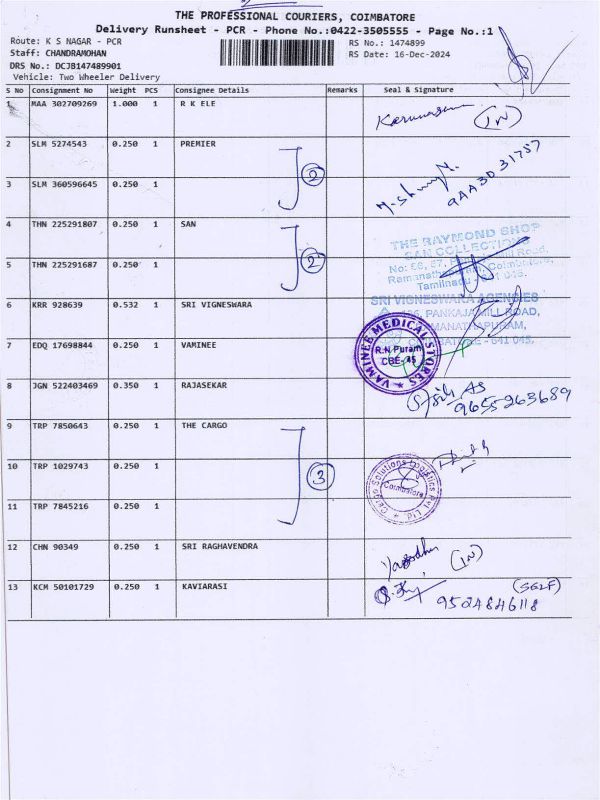 THE PROFESSIONAL COURIERS, COIMBATORE
Delivery Runsheet - PCR - Phone No.:0422-3505555 - Page No.:1
Route: K S NAGAR - PCR
RS No.: 1474899
Staff: CHANDRAMOHAN
RS Date: 16-Dec-2024
DRS No.: DCJB147489901
Vehicle: Two Wheeler Delivery
S No Consignment No Weight PCS Consignee Details Remarks Seal & Signature
1 MAA 302709269 1.000 1 R K ELE
(IN)
2 SLM 5274543 0.250 1 PREMIER
2
3 SLM 360596645 0.250 1
4 THN 225291807 0.250 1 SAN
2
THE RAYMOND SHOP
SAN COLLECTIONS
Ramanathapuram, Coimbatore,
5 THN 225291687 0.250 1
Tamilnadu
6 KRR 928639 0.532 1 SRI VIGNESWARA
SRI VIGNESWARA AGENCIES
PANKAJA MILL ROAD,
7 EDQ 17698844 0.250 1 VAMINEE
VAMINEE MEDICAL STORES
R.N Puram
CBE-45
COIMBATORE - 641 045.
8 JGN 522403469 0.350 1 RAJASEKAR
9655263689
9 TRP 7850643 0.250 1 THE CARGO
3
10 TRP 1029743 0.250 1
Cargo Solutions Logistics Pvt. Ltd.
Coimbatore
11 TRP 7845216 0.250 1
12 CHN 90349 0.250 1 SRI RAGHAVENDRA
(IN)
13 KCM 50101729 0.250 1 KAVIARASI
9524846118